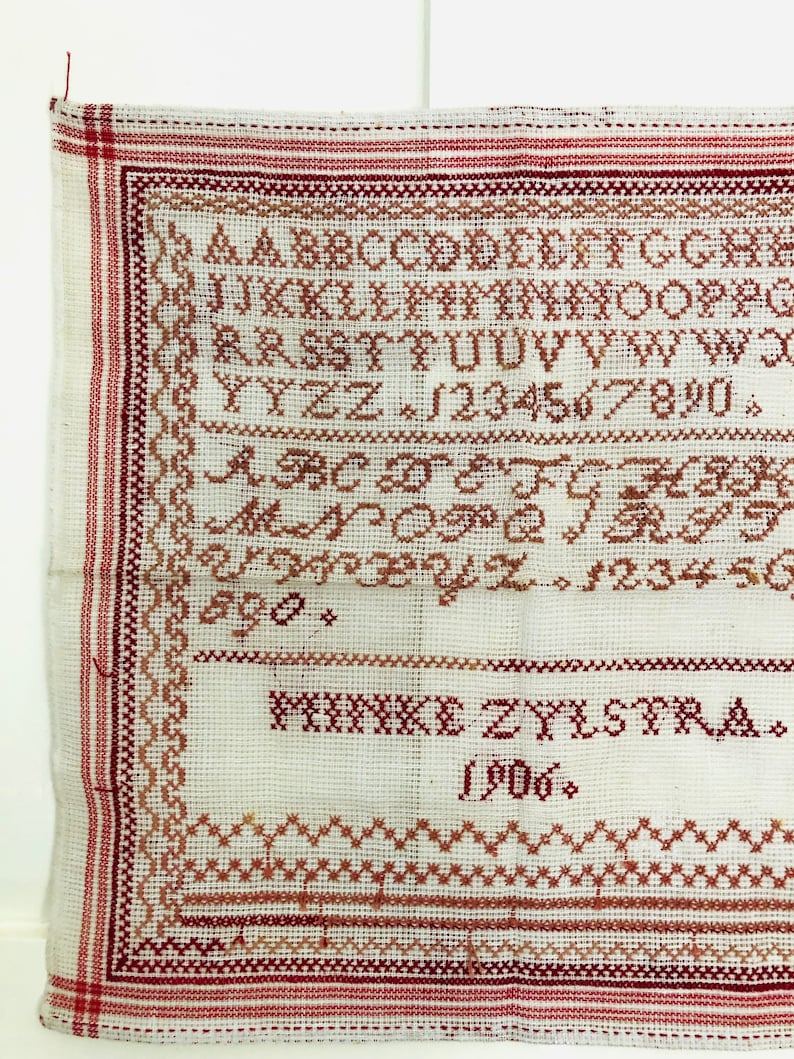 AABBCCDDEEFFGGHH
IJKKLLMMNNOOPPQ
RRSSTTUUVVWWX
YYZZ.1234567890.
ABCDEFGHIK
MNOPQRST
UVWXYZ.123456
890.
MINKE ZYLSTRA.
1906.